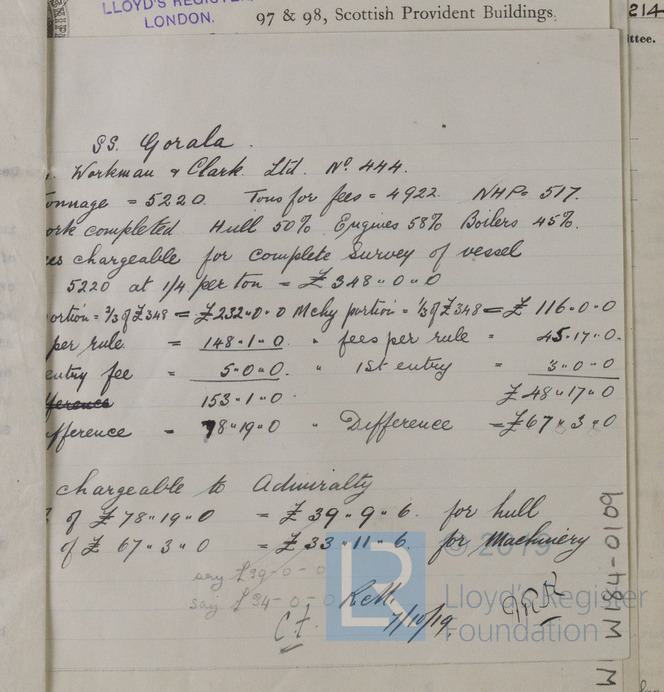 LLOYD'S REGISTER
LONDON.
97 & 98, Scottish Provident Buildings,
214
ttee.
SS. Gorala.
Workman & Clark Ltd. No. 444.
onnage = 5220. Tons for fees = 4922. NHP = 517.
ork completed Hull 50% Engines 58% Boilers 45%.
es chargeable for complete Survey of vessel
5220 at 1/4 per ton = £348"0"0
ortion = 2/3 of £348 = £232"0"0 Mchy portion = 1/3 of £348 = £116"0"0
per rule = 148"1"0 " fees per rule = 45"17"0.
entry fee = 5"0"0. " 1st entry = 3"0"0
ference 153"1"0 £48"17"0
fference = 78"19"0 " Difference = £67"3"0
chargeable to Admiralty
of £78"19"0 = £39"9"6. for hull
of £67"3"0 = £33"11"6. for Machinery
say £39-0-0
say £34-0-0
C.t.
7/10/19.
W184-0109
© 2019
LR
Lloyd's Register
Foundation